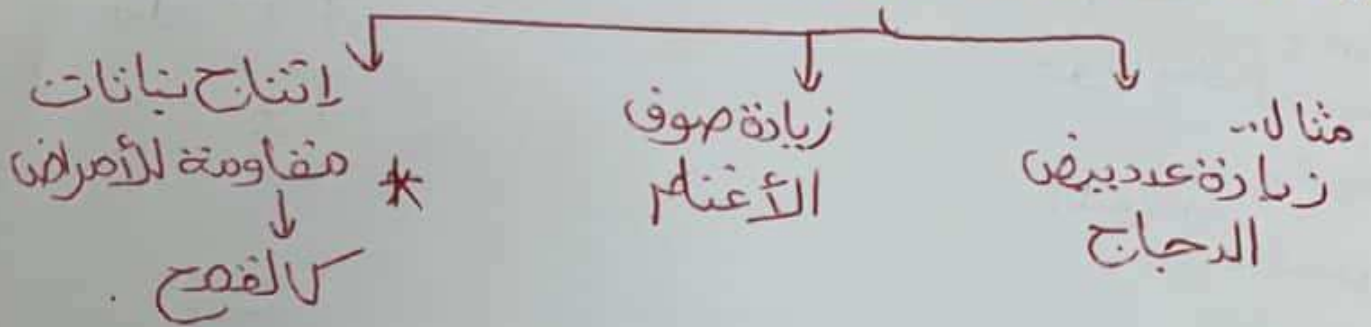 مثال..
زيادة عدد بيض
الدجاج
زيادة صوف
الأغنام
إنتاج نباتات
* مقاومة للأمراض
كالقمح .